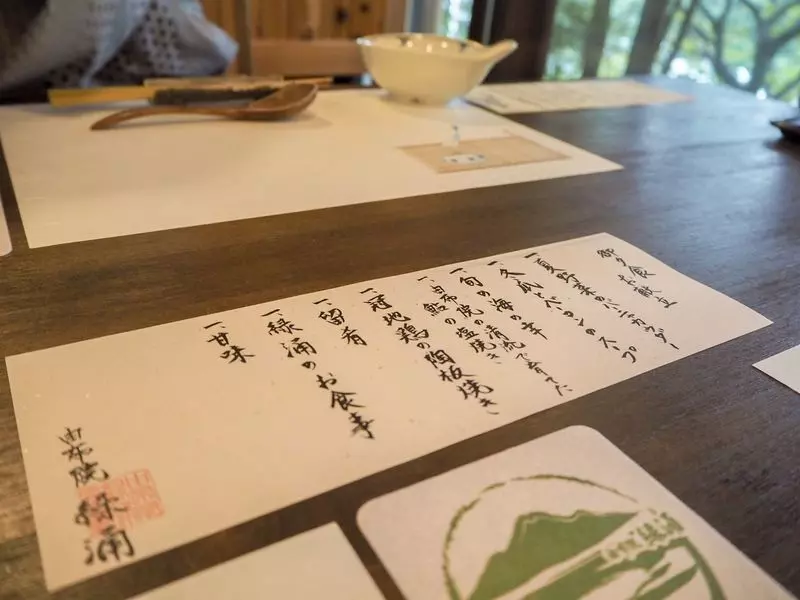 御夕食 お献立
一、夏野菜のバーニャカウダー
一、冬瓜とベーコンのスープ
一、旬の海の幸
一、由布院の清流で育てた
鮎の塩焼き
一、冠地鶏の陶板焼き
一、留肴
一、緑涌のお食事
一、甘味
由布院 緑涌